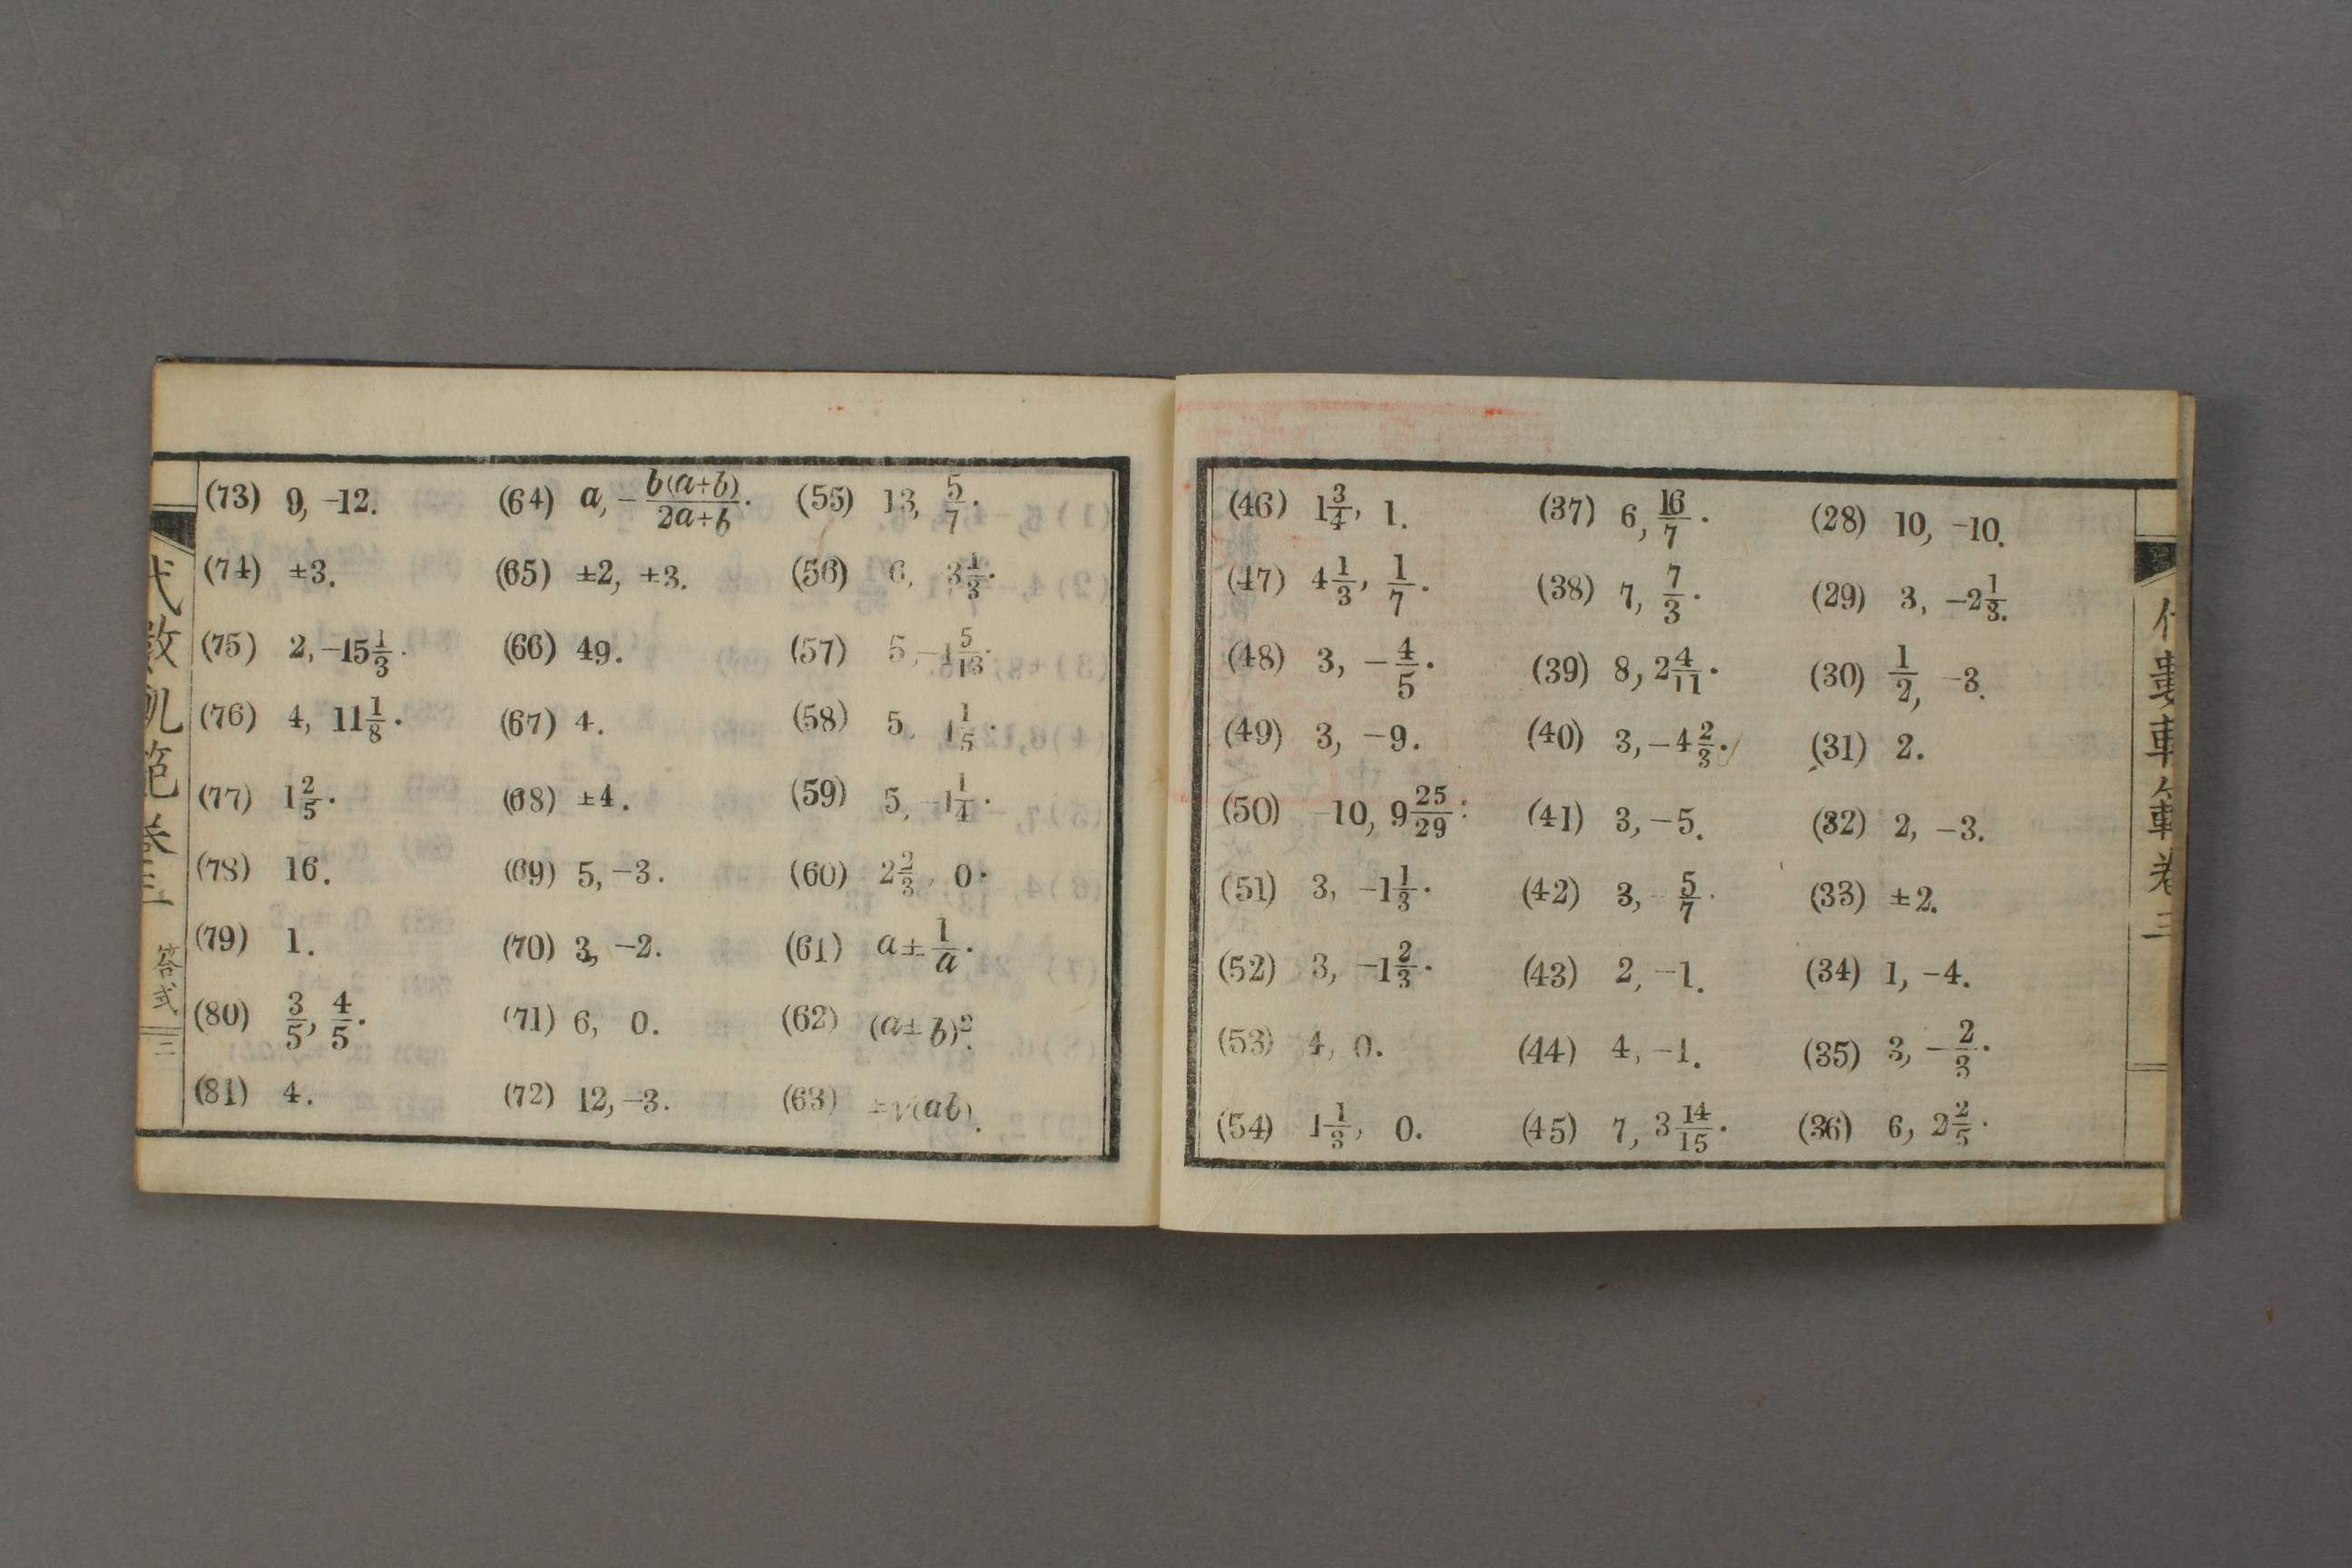 (28) 10, -10.
(29) 3, -2 1/3.
(30) 1/2, -3.
(31) 2.
(32) 2, -3.
(33) ±2.
(34) 1, -4.
(35) 3, -2/3.
(36) 6, 2 2/5.
(37) 6, 16/7.
(38) 7, 7/3.
(39) 8, 2 4/11.
(40) 3, -4 2/3.
(41) 3, -5.
(42) 3, -5/7.
(43) 2, -1.
(44) 4, -1.
(45) 7, 3 14/15.
(46) 1 3/4, 1.
(47) 4 1/3, 1/7.
(48) 3, -4/5.
(49) 3, -9.
(50) -10, 9 25/29.
(51) 3, -1 1/3.
(52) 3, -1 2/3.
(53) 4, 0.
(54) 1 1/3, 0.
(55) 13, 5/7.
(56) 6, 3 1/3.
(57) 5, -1 5/13.
(58) 5, 1 1/5.
(59) 5, -1 1/4.
(60) 2 2/3, 0.
(61) a ± 1/a.
(62) (a±b)².
(63) ±√(ab).
(64) a, -b(a+b)/(2a+b).
(65) ±2, ±3.
(66) 49.
(67) 4.
(68) ±4.
(69) 5, -3.
(70) 3, -2.
(71) 6, 0.
(72) 12, -3.
(73) 9, -12.
(74) ±3.
(75) 2, -15 1/3.
(76) 4, 11 1/8.
(77) 1 2/5.
(78) 16.
(79) 1.
(80) 3/5, 4/5.
(81) 4.
卷三 答式 三